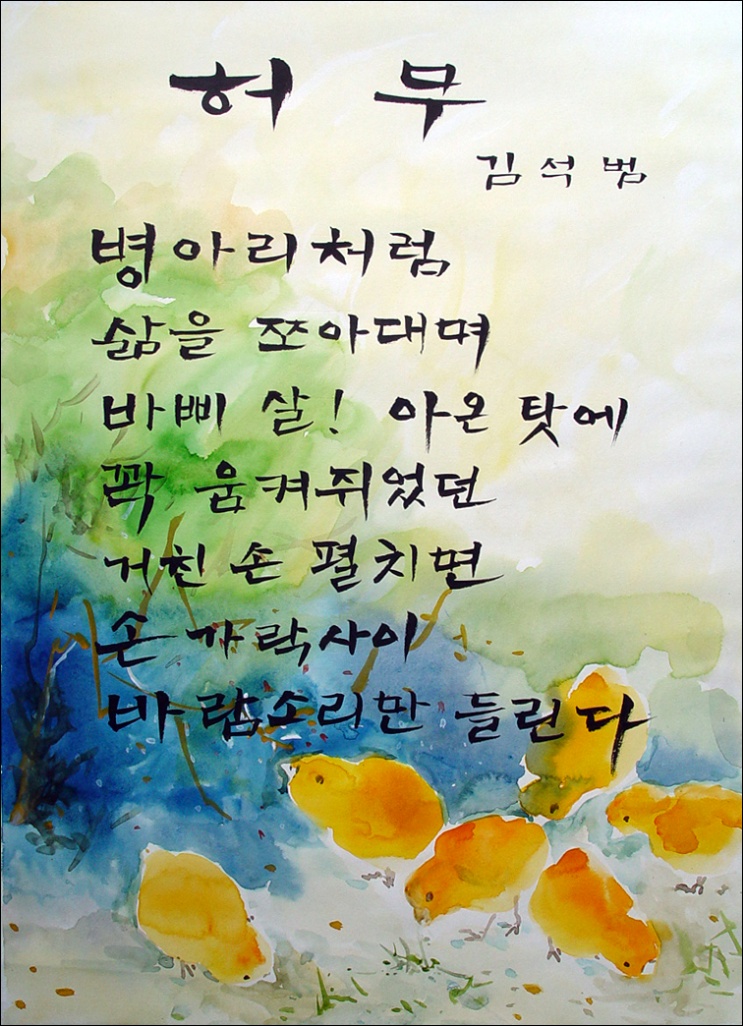 허 무
김 석 범
병아리처럼
삶을 쪼아대며
바삐 살! 아온 탓에
꽉 움켜쥐었던
거친 손 펼치면
손 가락사이
바람소리만 들린다